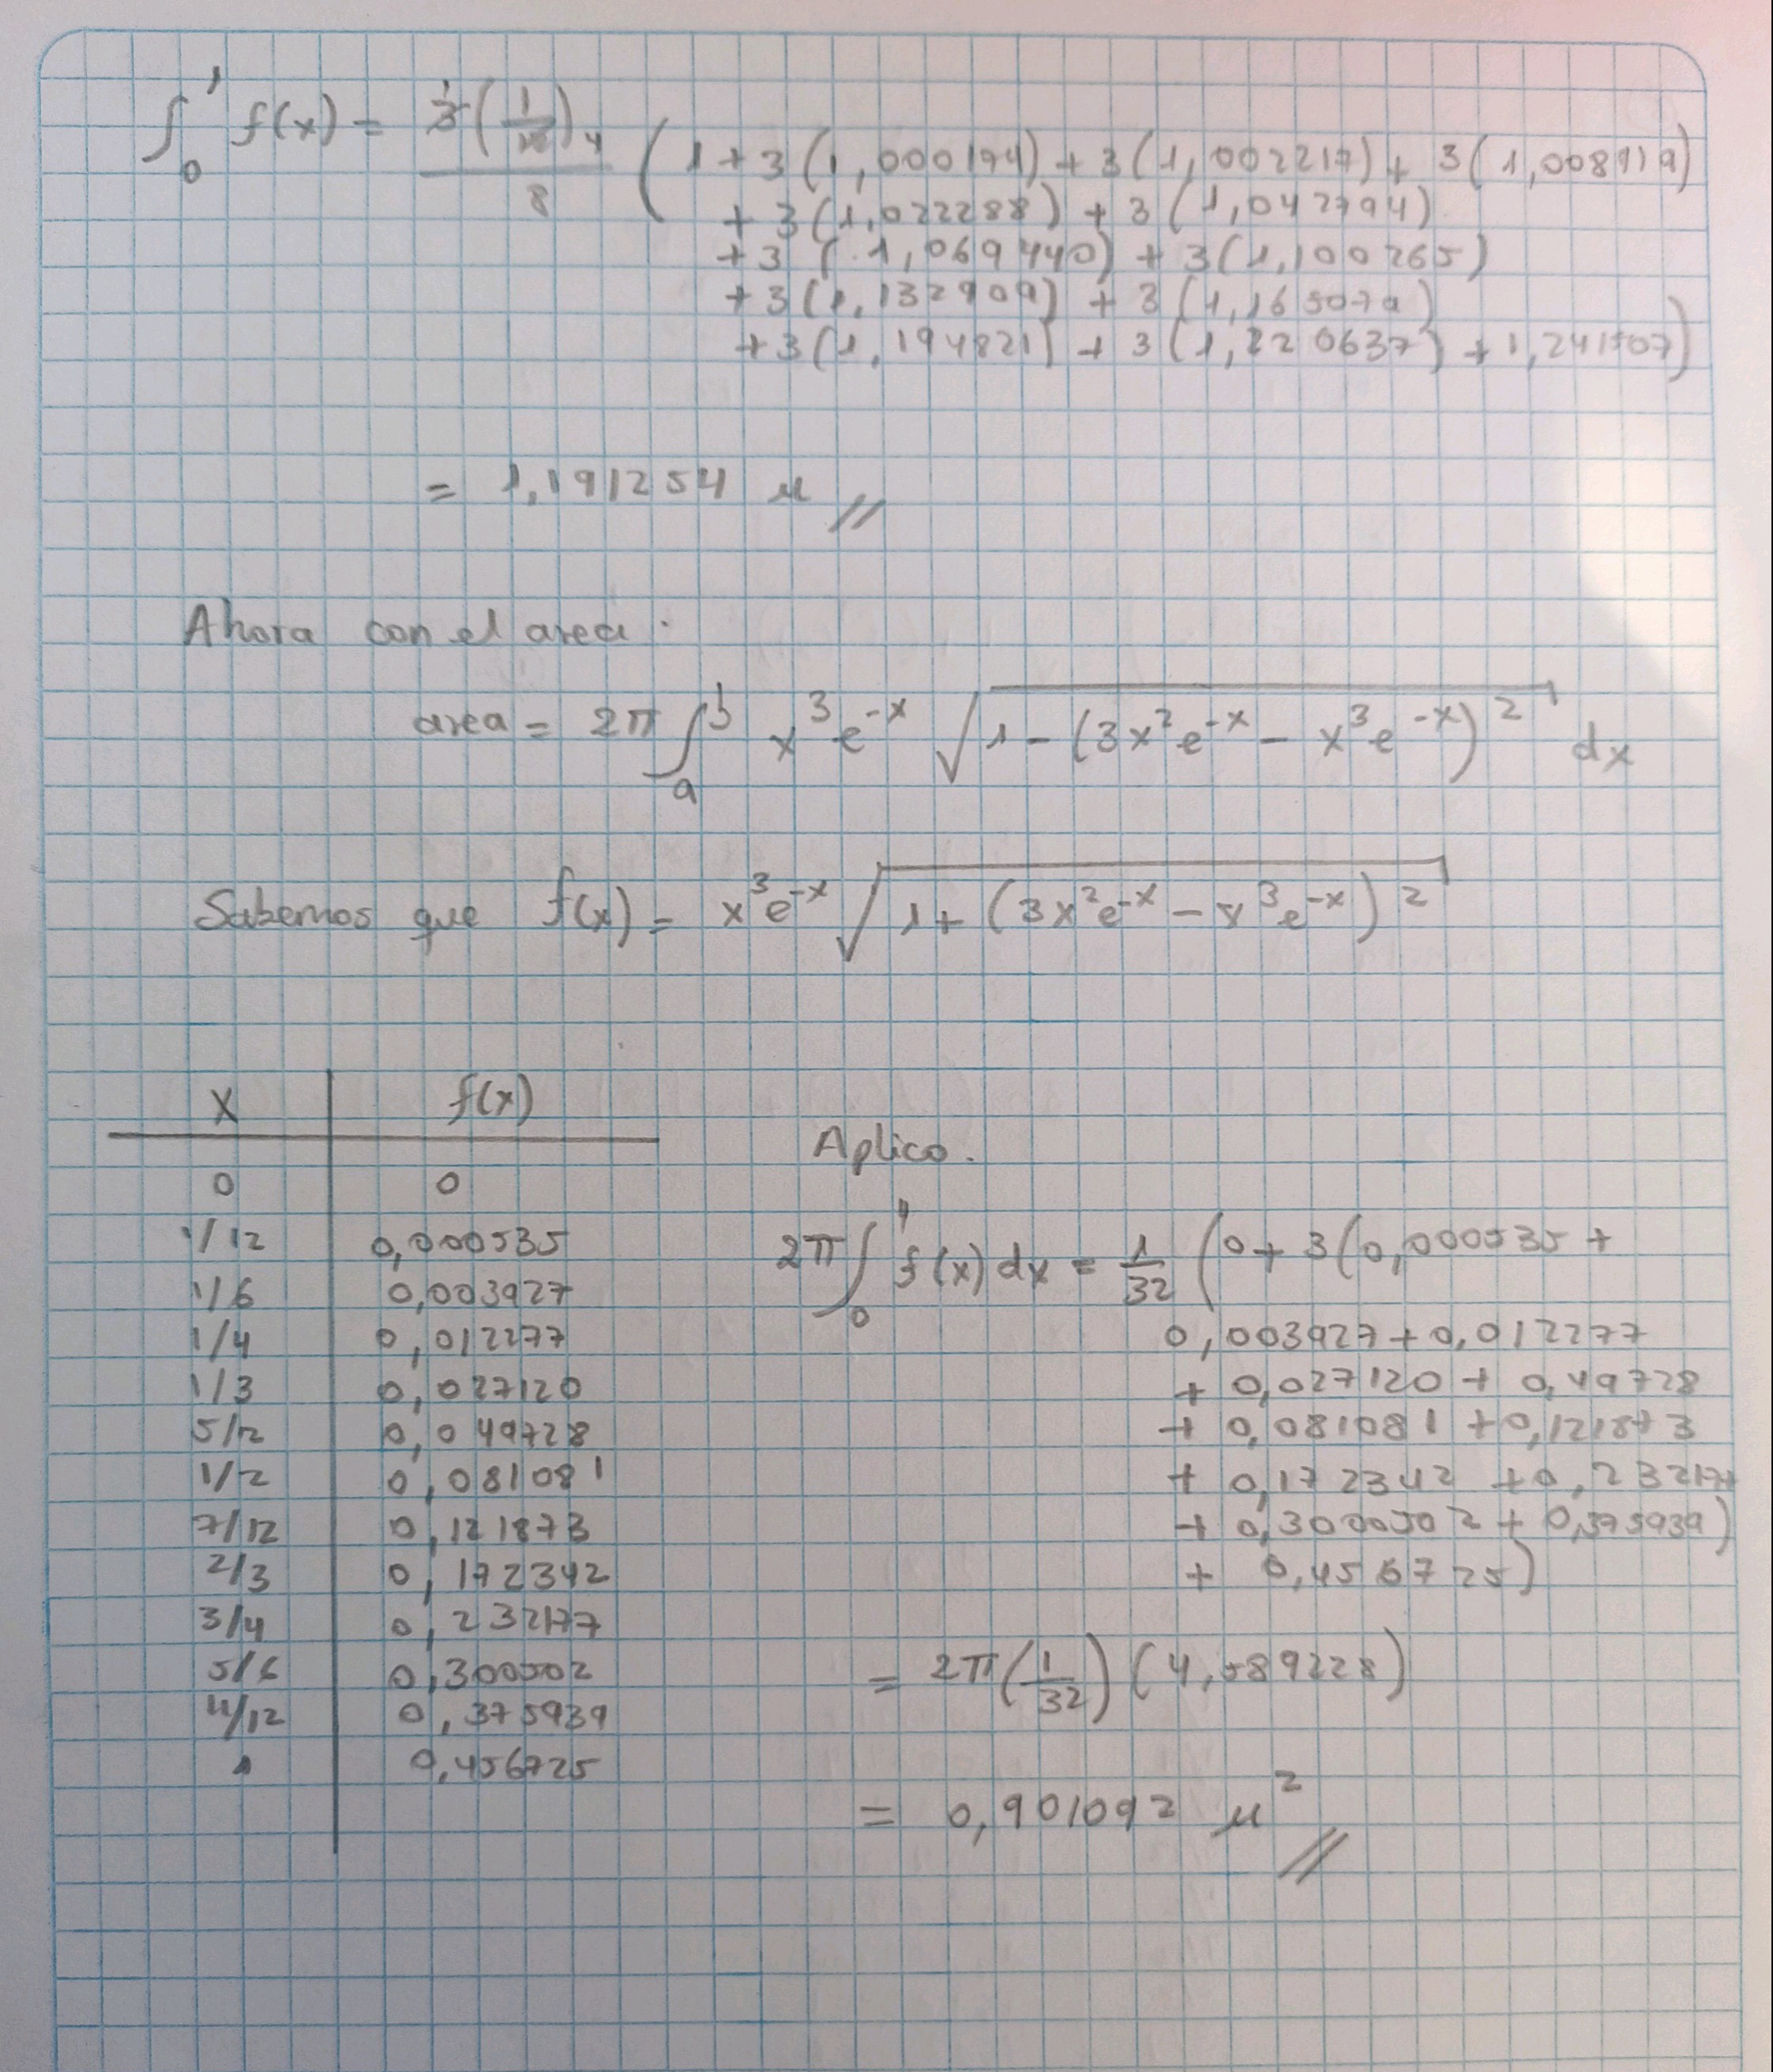 ∫₀¹ f(x) = 3(1/12)/8 (1 + 3(1,000194) + 3(1,002217) + 3(1,008919)
+ 3(1,022288) + 3(1,042794)
+ 3(1,069440) + 3(1,100265)
+ 3(1,132909) + 3(1,165079)
+ 3(1,194821) + 3(1,220637) + 1,241507)
= 1,191254 μ //
Ahora con el area.
area = 2π ∫ₐᵇ x³e⁻ˣ √(1 - (3x²e⁻ˣ - x³e⁻ˣ)²) dx
Sabemos que f(x) = x³e⁻ˣ √(1 + (3x²e⁻ˣ - x³e⁻ˣ)²)
x | f(x)
0 | 0
1/12 | 0,000535
1/6 | 0,003927
1/4 | 0,012277
1/3 | 0,027120
5/12 | 0,049728
1/2 | 0,081081
7/12 | 0,121873
2/3 | 0,172342
3/4 | 0,232177
5/6 | 0,300502
11/12 | 0,375939
1 | 0,456725
Aplico.
2π ∫₀¹ f(x) dx = 1/32 (0 + 3(0,000535 +
0,003927 + 0,012277
+ 0,027120 + 0,49728
+ 0,081081 + 0,121873
+ 0,172342 + 0,232177
+ 0,3000502 + 0,375939)
+ 0,456725)
= 2π (1/32) (4,589228)
= 0,901092 μ² //